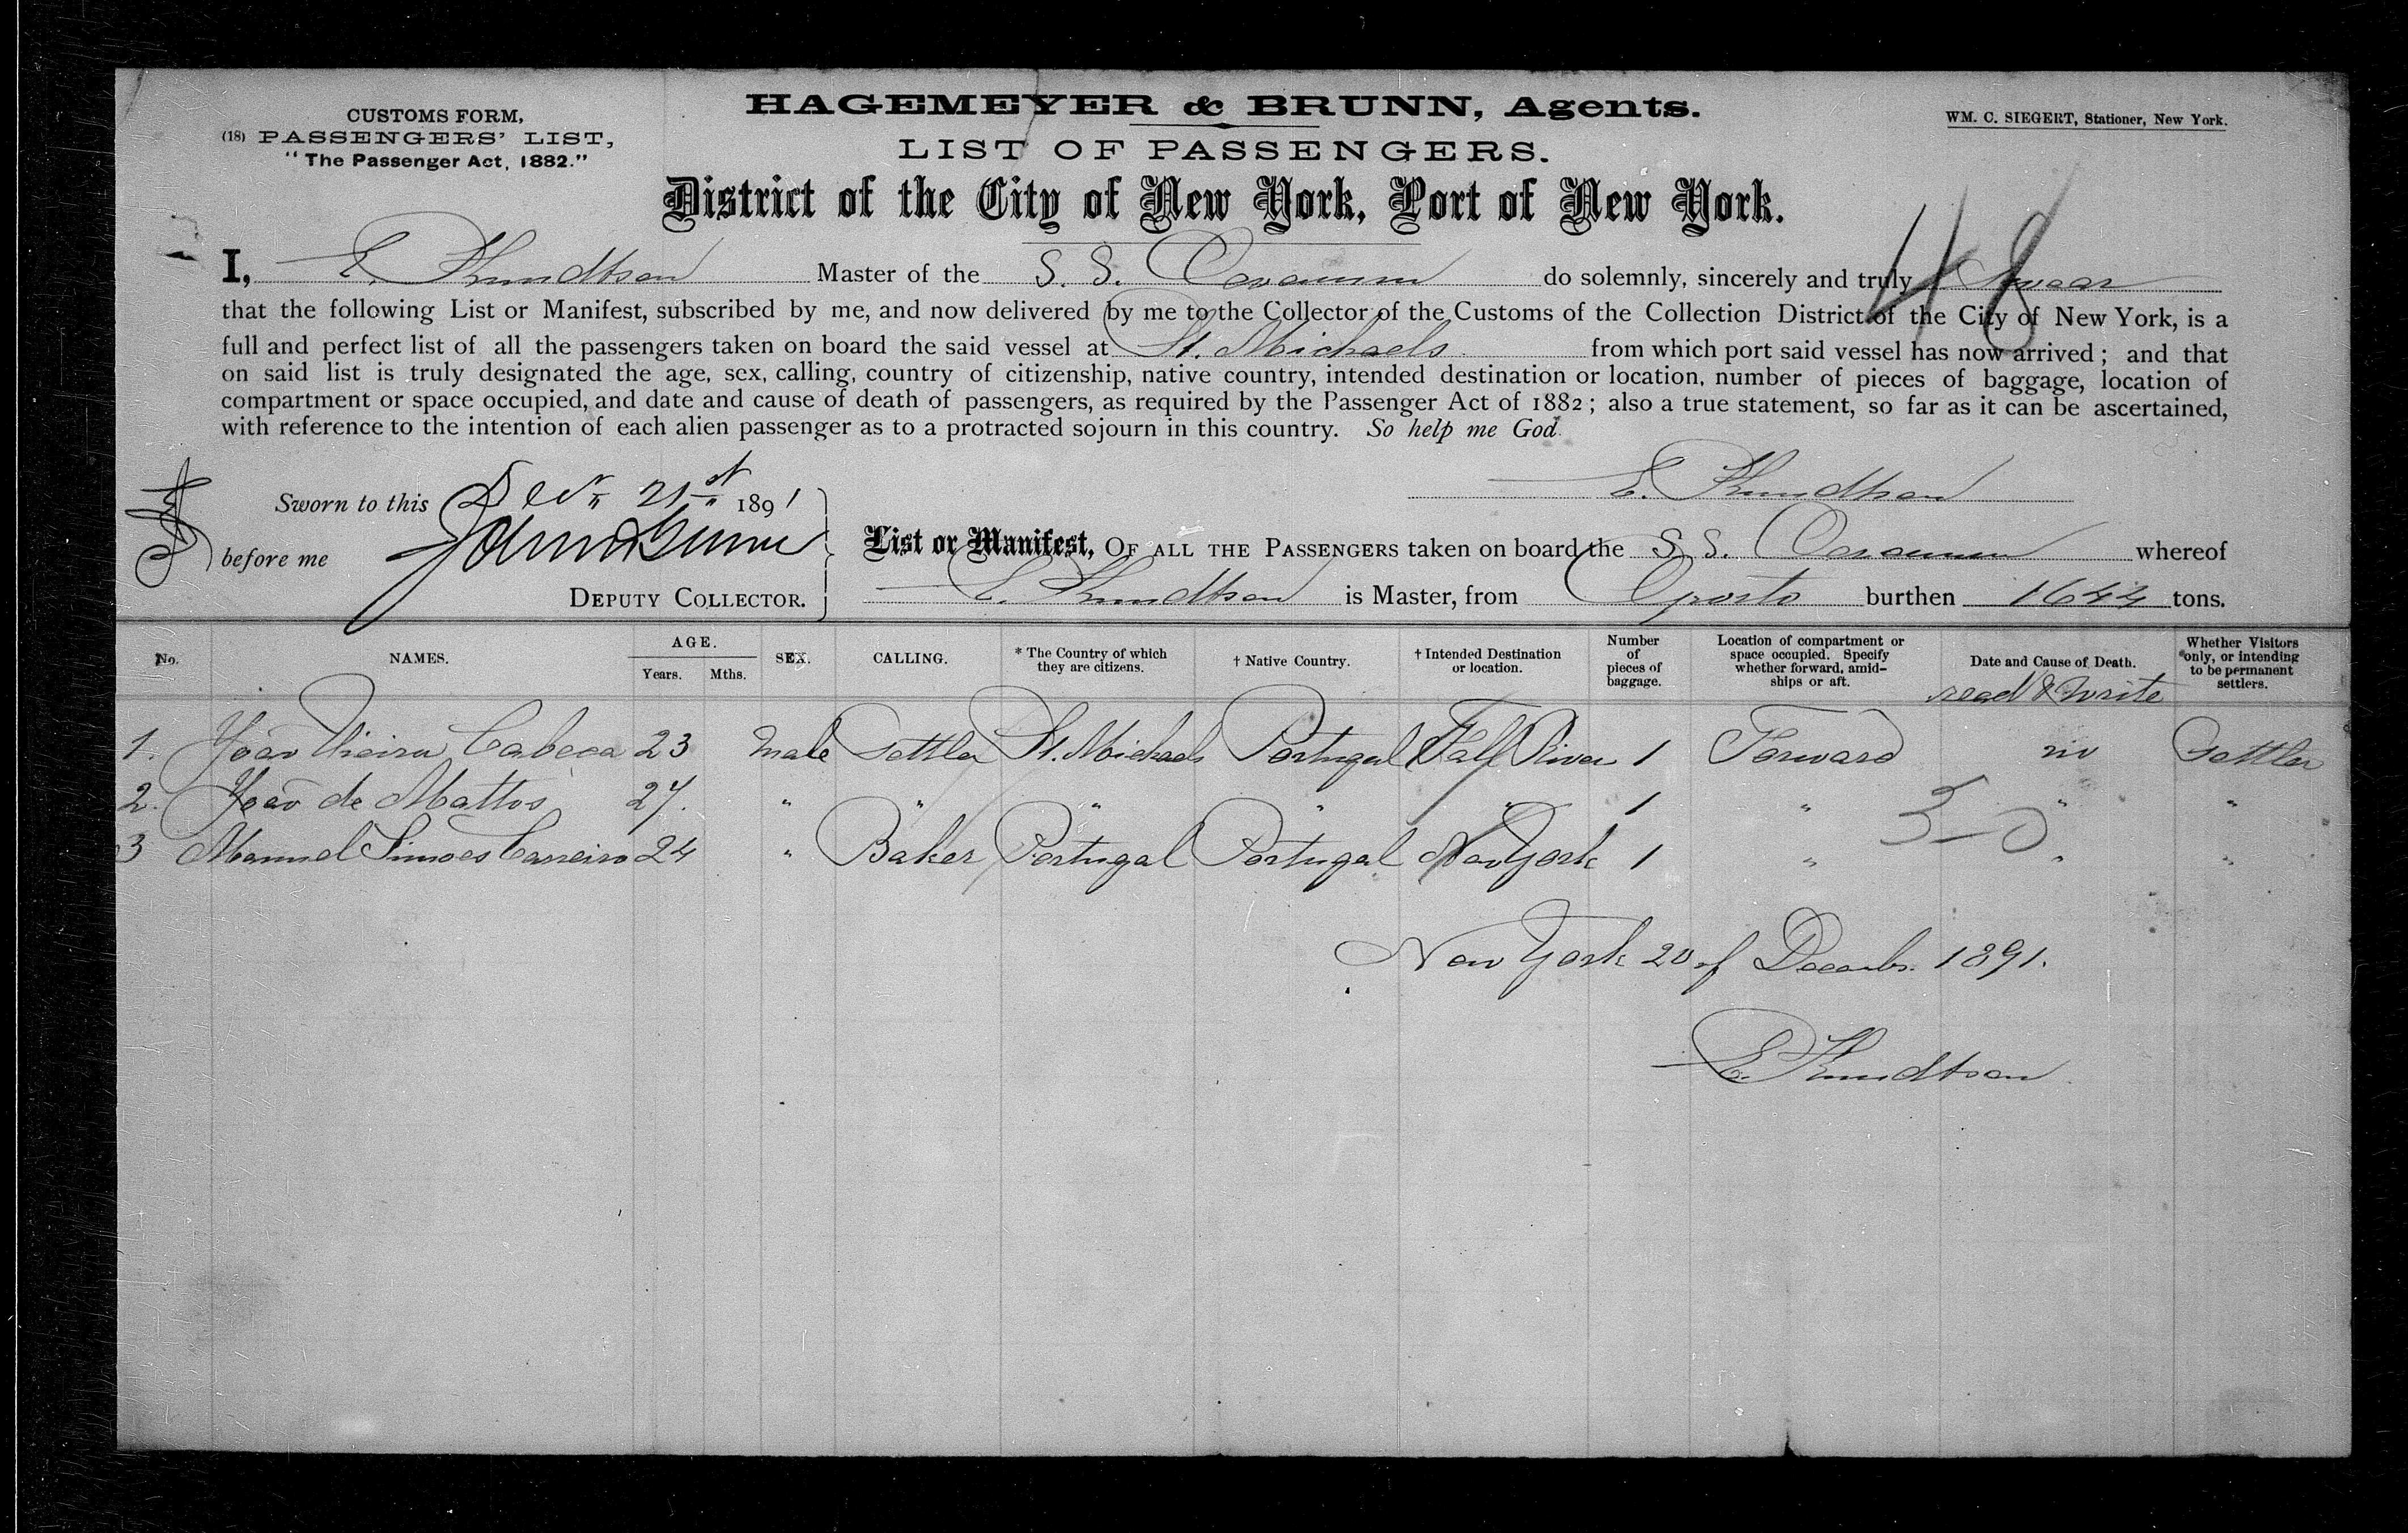 HAGEMEYER & BRUNN, Agents.
CUSTOMS FORM,
(18) PASSENGERS' LIST,
"The Passenger Act, 1882."
WM. C. SIEGERT, Stationer, New York.
LIST OF PASSENGERS.
District of the City of New York, Port of New York.
48
I, E. Knudtson Master of the S. S. do solemnly, sincerely and truly Swear
that the following List or Manifest, subscribed by me, and now delivered by me to the Collector of the Customs of the Collection District of the City of New York, is a
full and perfect list of all the passengers taken on board the said vessel at St. Michaels from which port said vessel has now arrived; and that
on said list is truly designated the age, sex, calling, country of citizenship, native country, intended destination or location, number of pieces of baggage, location of
compartment or space occupied, and date and cause of death of passengers, as required by the Passenger Act of 1882; also a true statement, so far as it can be ascertained,
with reference to the intention of each alien passenger as to a protracted sojourn in this country. So help me God.
E. Knudtson
Sworn to this Decr 21st 1891
before me
DEPUTY COLLECTOR.
List or Manifest, OF ALL THE PASSENGERS taken on board the S. S. whereof
E. Knudtson is Master, from Oporto burthen 1644 tons.
No. NAMES. AGE. Years. Mths. SEX. CALLING. * The Country of which they are citizens. † Native Country. † Intended Destination or location. Number of pieces of baggage. Location of compartment or space occupied. Specify whether forward, amid-ships or aft. Date and Cause of Death. Whether Visitors only, or intending to be permanent settlers.
read & write
1. João Vieira Cabeca 23 Male Settler St. Michaels Portugal Fall River 1 Forward no Settler
2. João de Mattos 27. " " " " " 1 " " "
3 Manuel Simoes Carreiro 24 " Baker Portugal Portugal New York 1 " " "
3-0
New York 20 of Decembr. 1891.
E. Knudtson